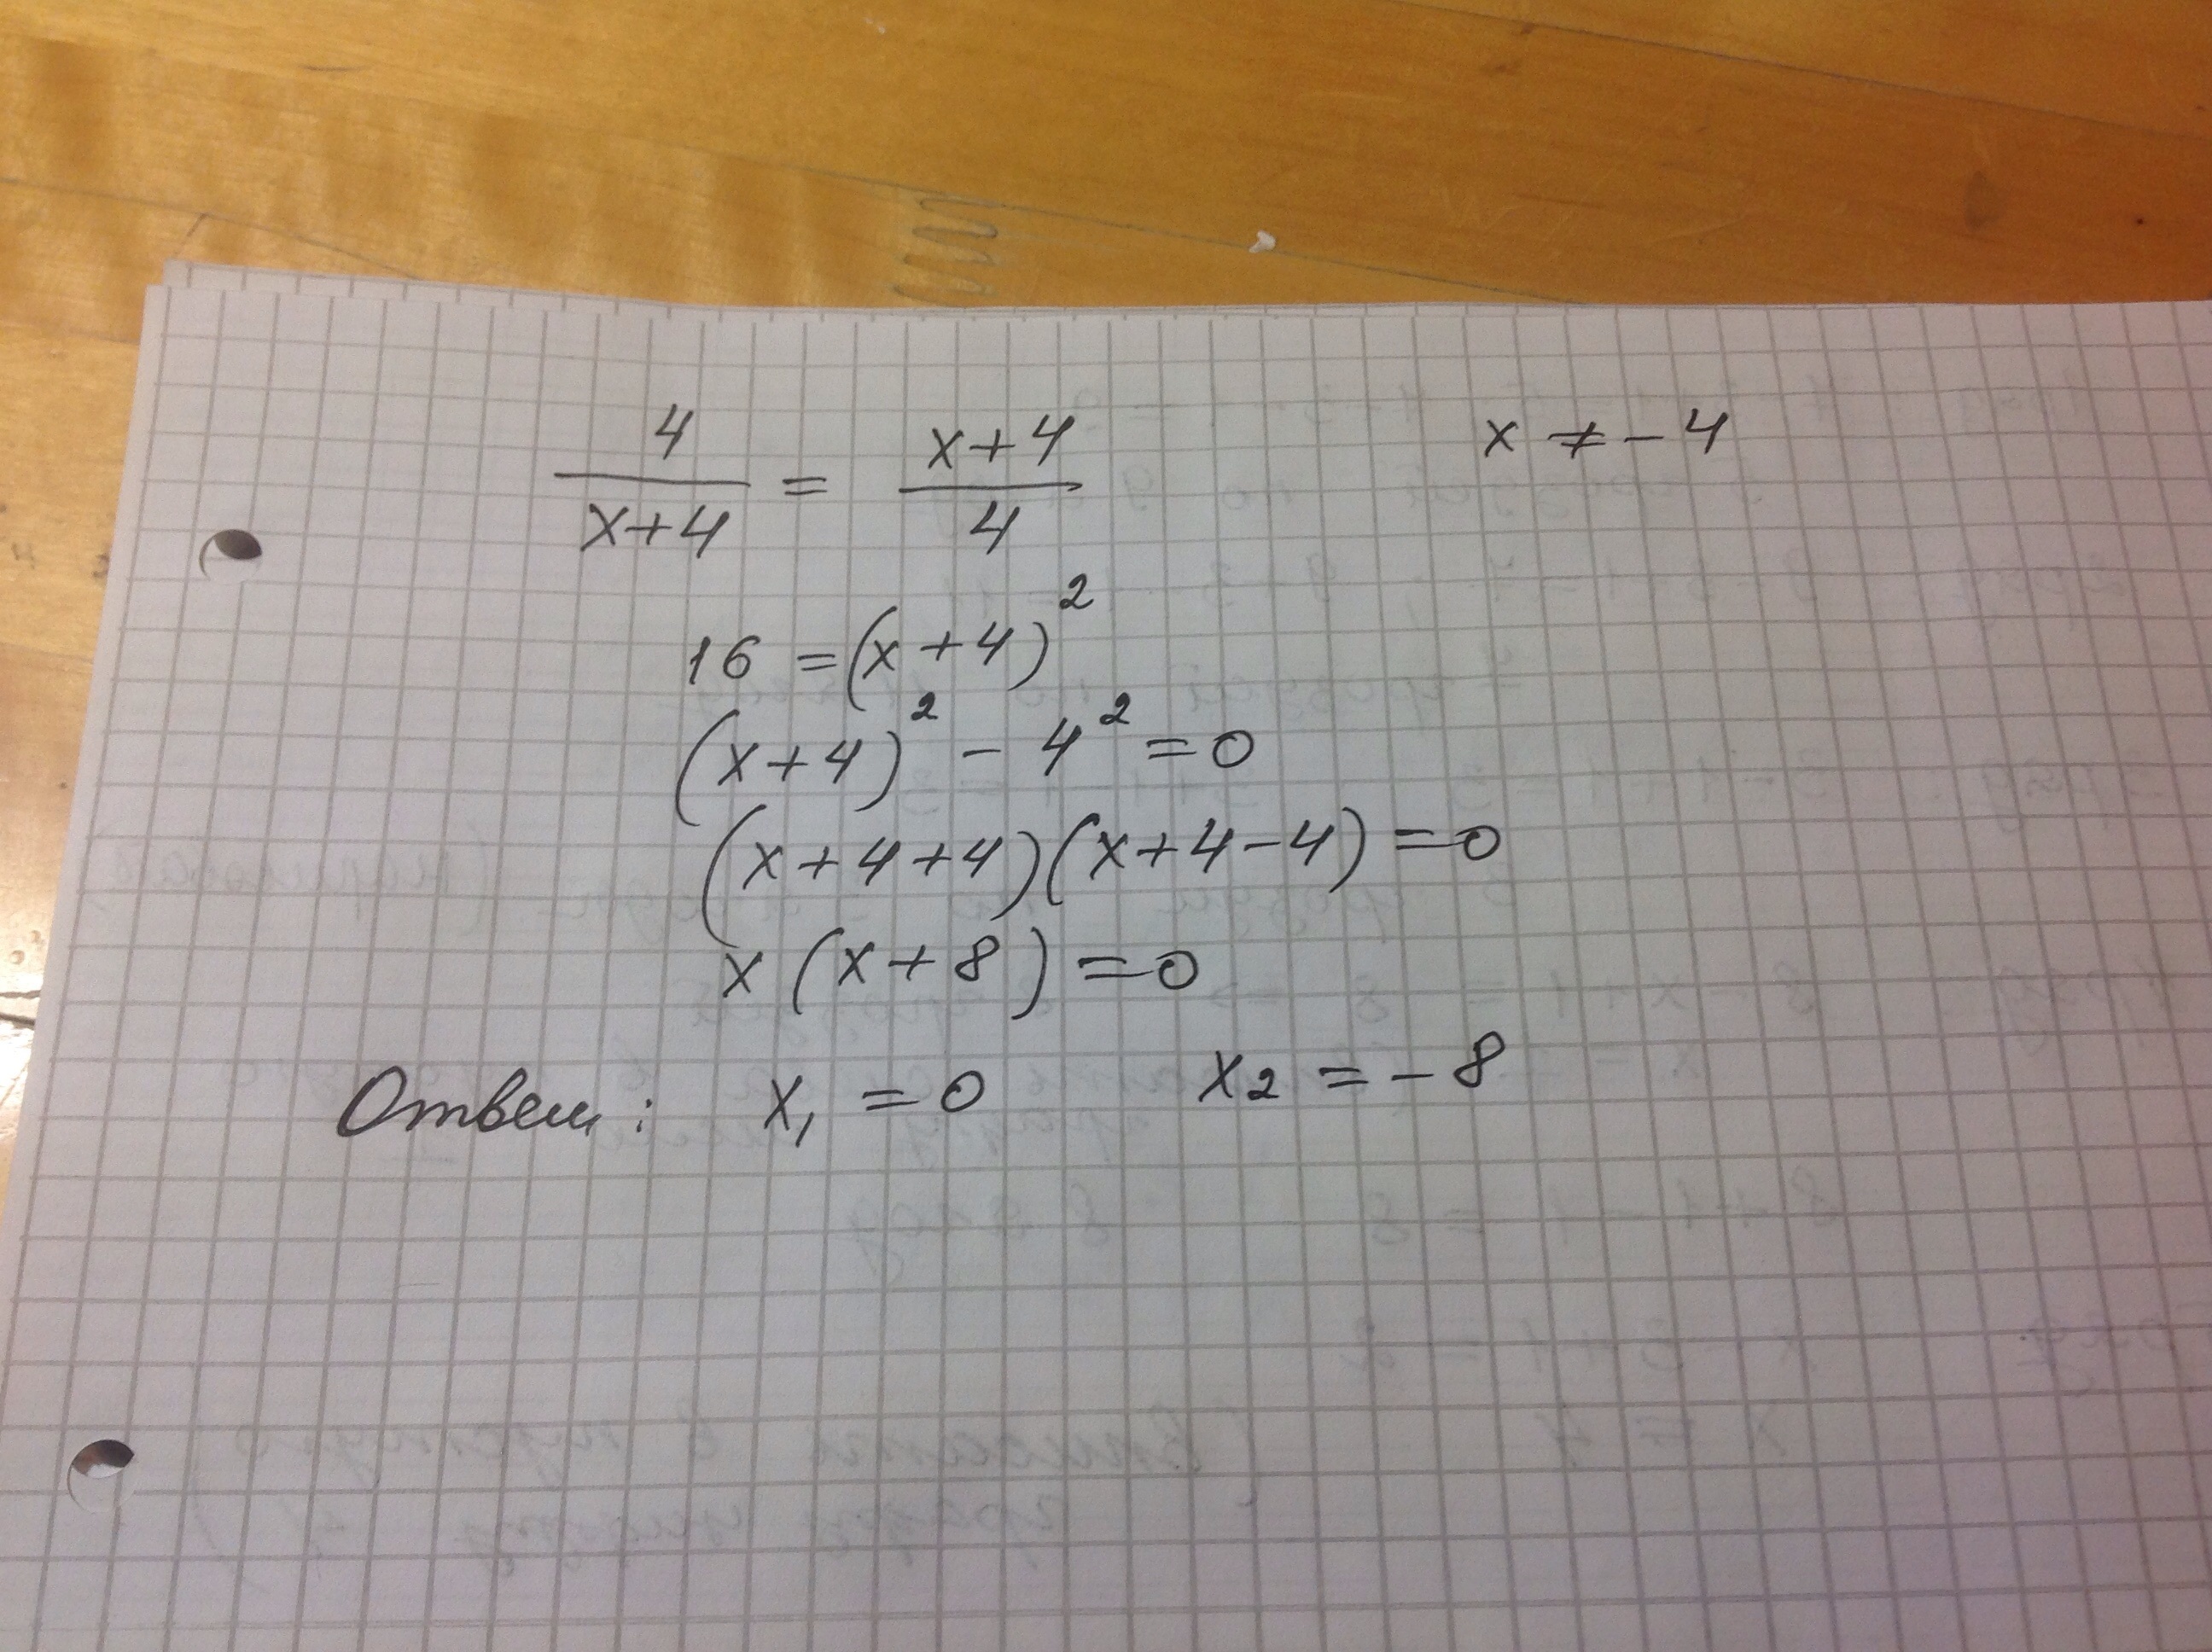 4/(x+4) = (x+4)/4 x ≠ -4
16 = (x+4)²
(x+4)² - 4² = 0
(x+4+4)(x+4-4) = 0
x(x+8) = 0
Ответ: x₁ = 0 x₂ = -8